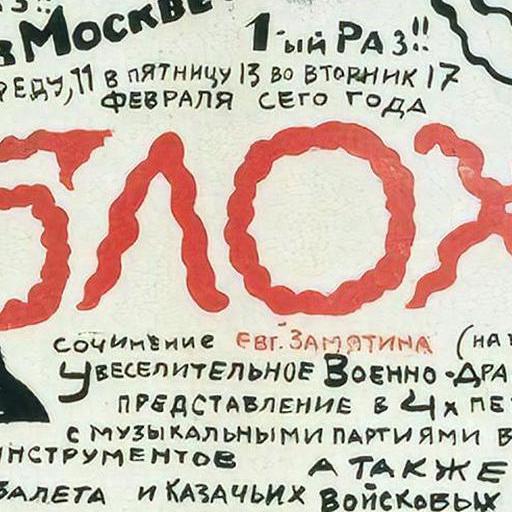 в Москве
1-ый РАЗ!!
РЕДУ, 11 В ПЯТНИЦУ 13 ВО ВТОРНИК 17
ФЕВРАЛЯ СЕГО ГОДА
БЛОХ
СОЧИНЕНИЕ ЕВГ. ЗАМЯТИНА (НА
УВЕСЕЛИТЕЛЬНОЕ ВОЕННО-ДРА
ПРЕДСТАВЛЕНИЕ В 4х ПЕ
С МУЗЫКАЛЬНЫМИ ПАРТИЯМИ В
ИНСТРУМЕНТОВ А ТАКЖЕ
БАЛЕТА И КАЗАЧЬИХ ВОЙСКОВЫХ